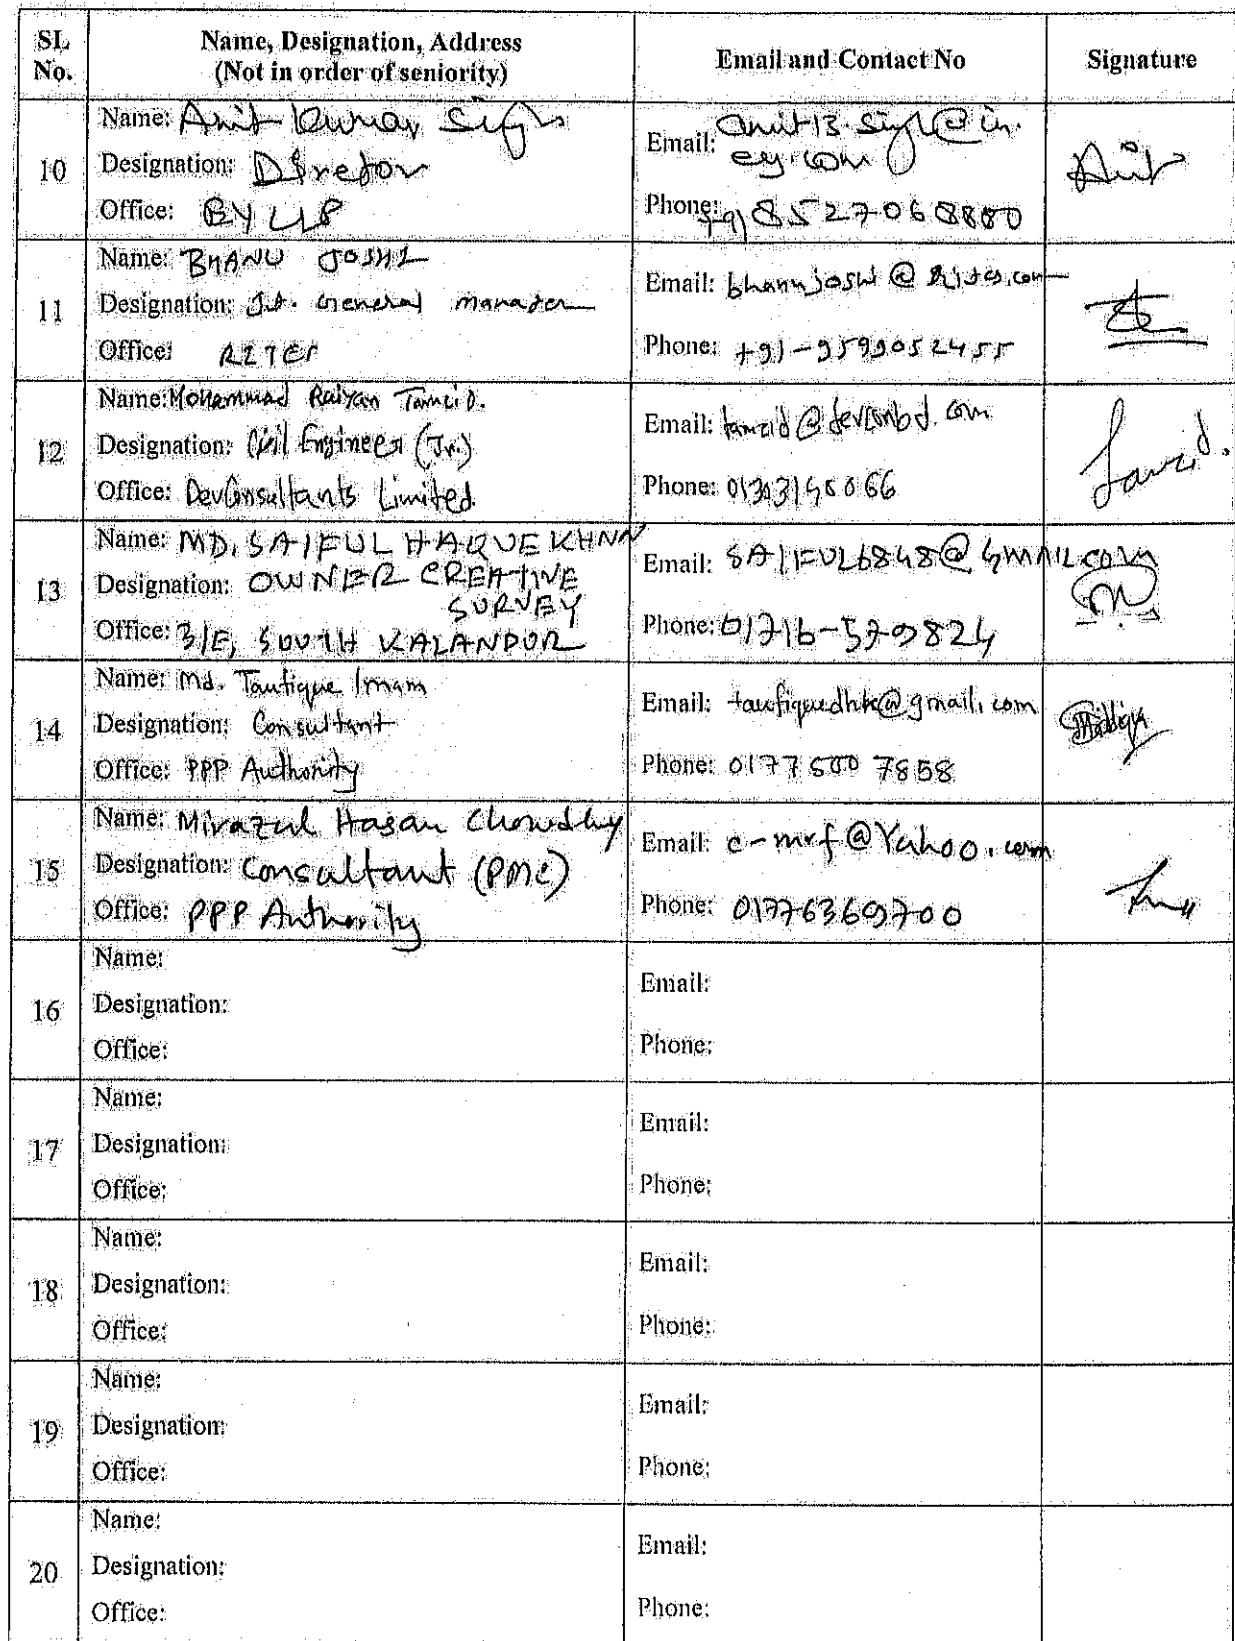 SL No.
Name, Designation, Address
(Not in order of seniority)
Email and Contact No
Signature
10
Name: Amit Kumar Singh
Designation: Director
Office: EY LLP
Email: amit13.singh@in.
ey.com
Phone: +91 8527068880
11
Name: BHANU JOSHI
Designation: Jt. General Manager
Office: RITES
Email: bhanujoshi@rites.com
Phone: +91-9599052455
12
Name: Mohammad Raiyan Tamzid.
Designation: Civil Engineer (Jr.)
Office: DevConsultants Limited.
Email: tamzid@devconbd.com
Phone:
Tamzid.
13
Name: MD. SAIFUL HAQUE KHAN
Designation: OWNER CREATIVE
SURVEY
Office: 3/E, SOUTH KALANDOR
Email: SAIFUL6848@GMAIL.COM
Phone: 01716-579824
14
Name: Md. Taufique Imam
Designation: Consultant
Office: PPP Authority
Email: taufiquedhk@gmail.com
Phone: 01775007858
15
Name: Mirazul Hasan Chowdhury
Designation: Consultant (PMC)
Office: PPP Authority
Email: c-mrf@Yahoo.com
Phone: 01776369700
16
Name:
Designation:
Office:
Email:
Phone:
17
Name:
Designation:
Office:
Email:
Phone:
18
Name:
Designation:
Office:
Email:
Phone:
19
Name:
Designation:
Office:
Email:
Phone:
20
Name:
Designation:
Office:
Email:
Phone: